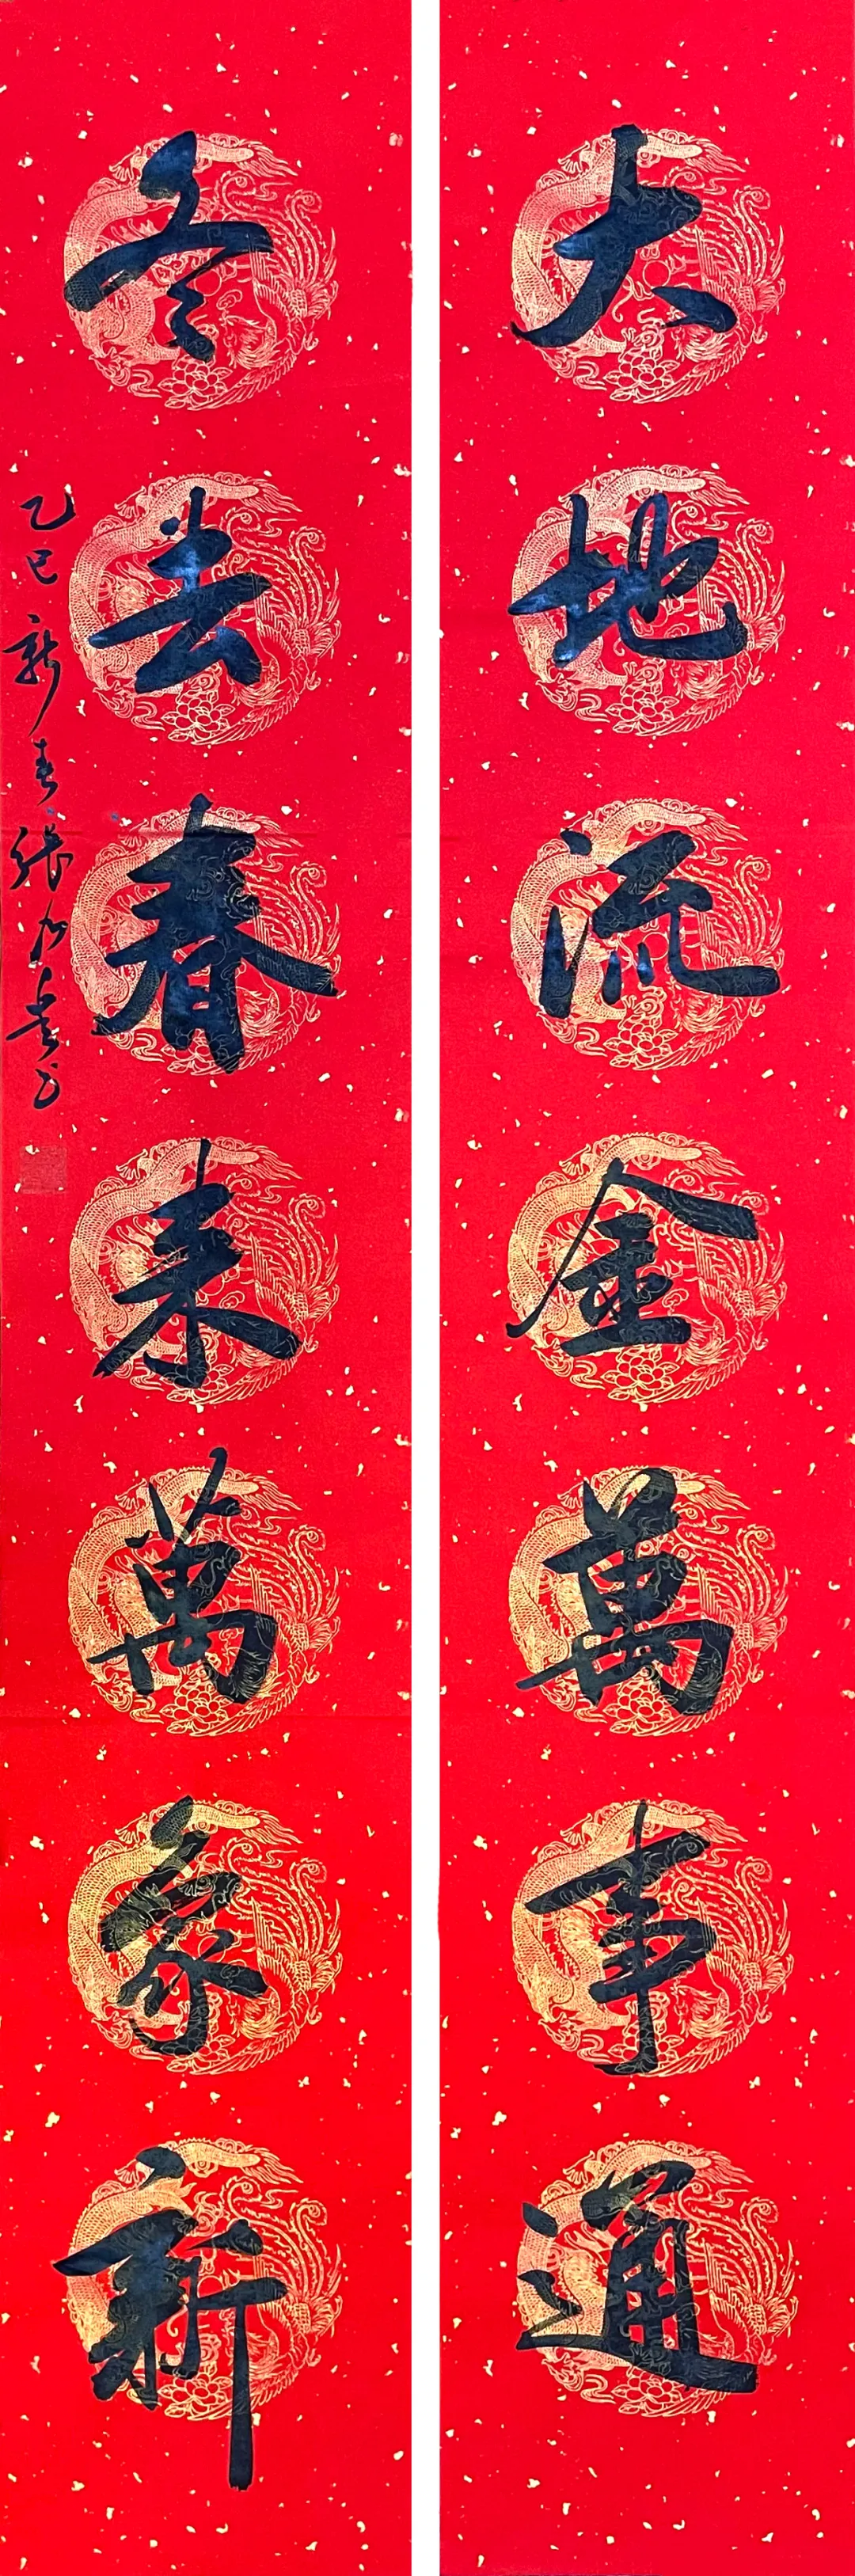 大地流金萬事通
冬去春来萬象新
乙巳新春張